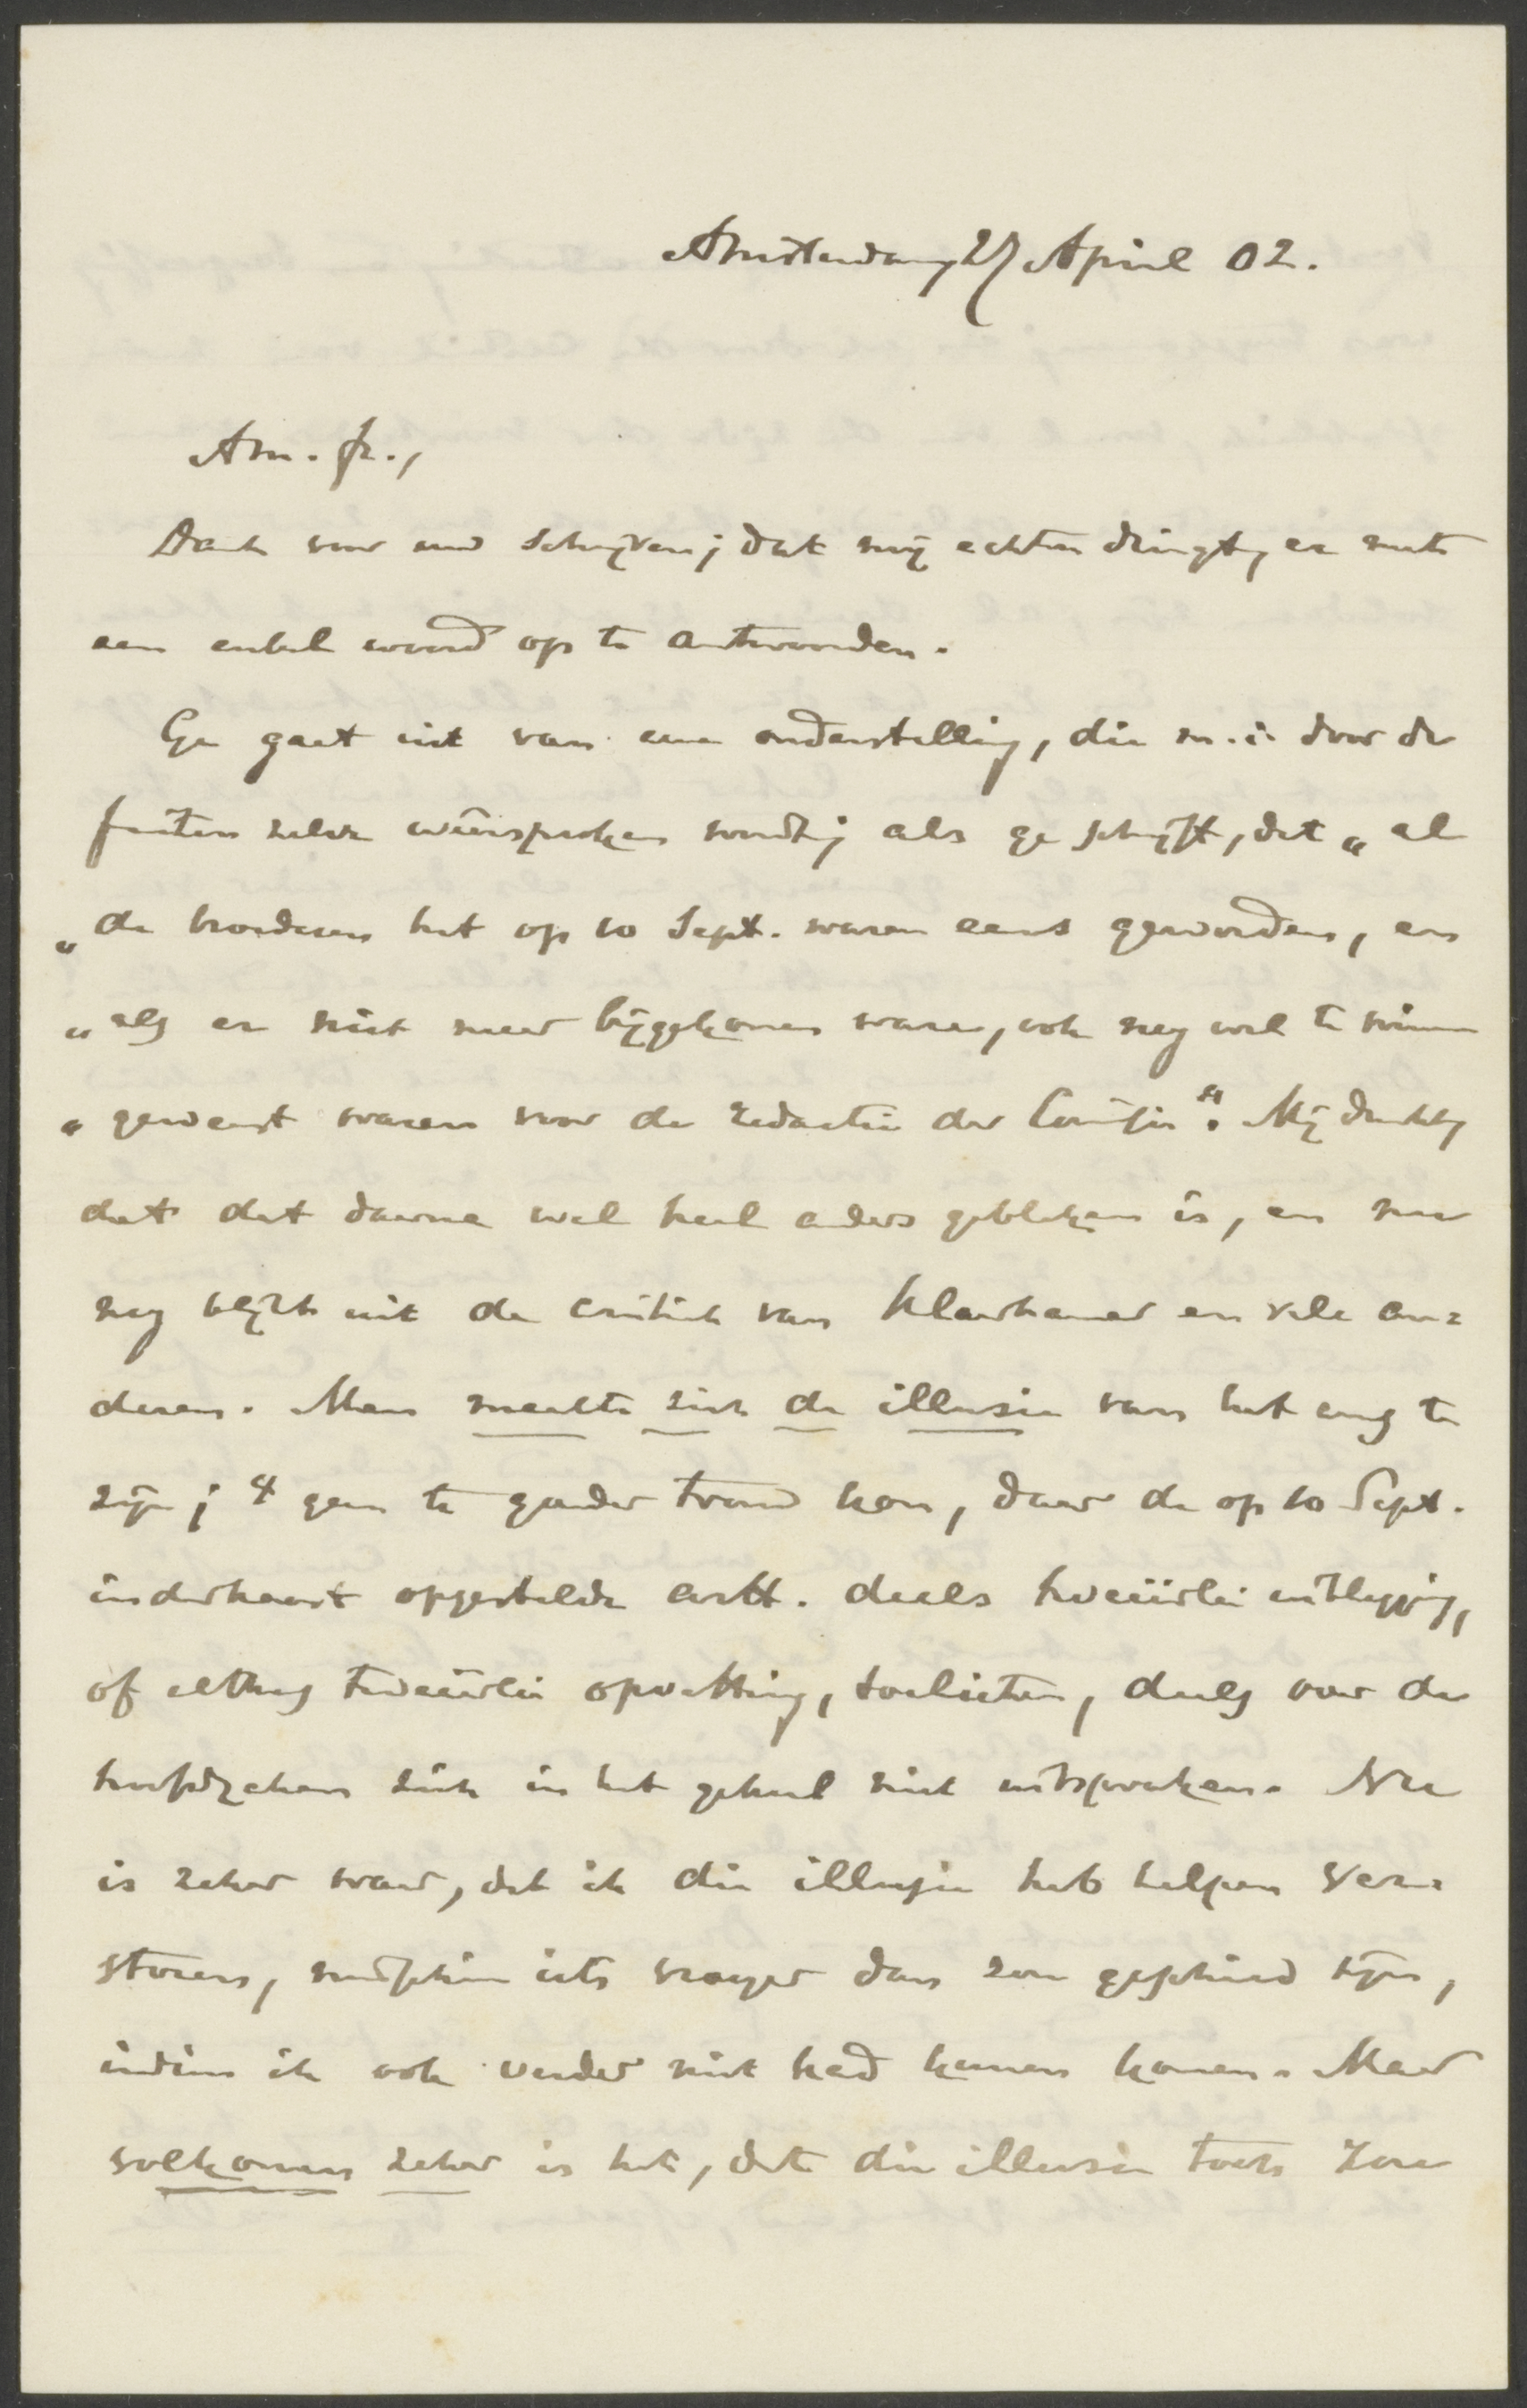 Amsterdam, 27 April 02.
Am. fr.,
Dank voor uw schrijven; dat mij echter dringt, er met
een enkel woord op te antwoorden.
Ge gaat uit van eene onderstelling, die m.i. door de
feiten zelve weêrsproken wordt; als ge schrijft, dat „al
„de broederen het op 10 Sept. waren eens geworden, en
„als er niet meer bijgekomen ware, ook nog wel te winnen
„geweest waren voor de redactie der Comissie". Mij dunkt,
dat dat daarna wel heel anders gebleken is, en nu
nog blijkt uit de critiek van Klaarhamer en vele an=
deren. Men maakte zich de illusie van het eens te
zijn; 't geen te gauder kon, daar de op 10 Sept.
inderhaast opgestelde artt. deels tweeërlei uitlegging,
of althans tweeërlei opvatting, toelieten, deels over de
hoofdzaken zich in het geheel niet uitspraken. Nu
is zeker waar, dat ik die illusie heb helpen ver=
storen, misschien iets vroeger dan zou geschied zijn,
indien ik ook verder niet had kunnen komen. Maar
volkomen zeker is het, dat die illusie toch zou